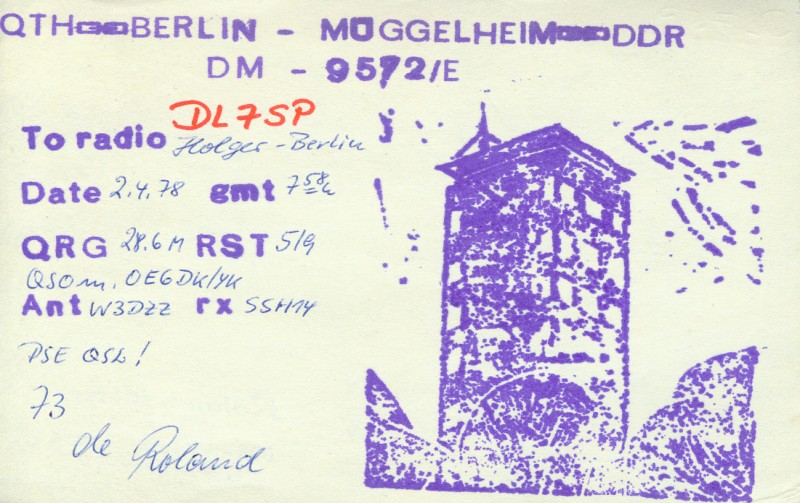 QTH BERLIN - MÜGGELHEIM DDR
DM - 9572/E
To radio DL7SP
Holger - Berlin
Date 2.4.78 gmt 7 58 h
QRG 28.6 M RST 5/9
QSO m. OE6DK/YK
Ant W3DZZ rx SSM14
PSE QSL!
73
de Roland